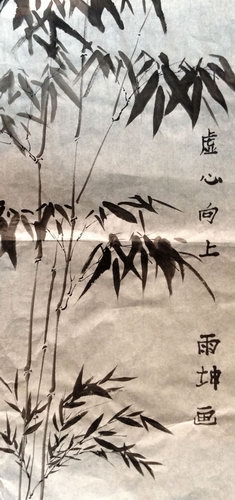 虚心向上
雨坤画